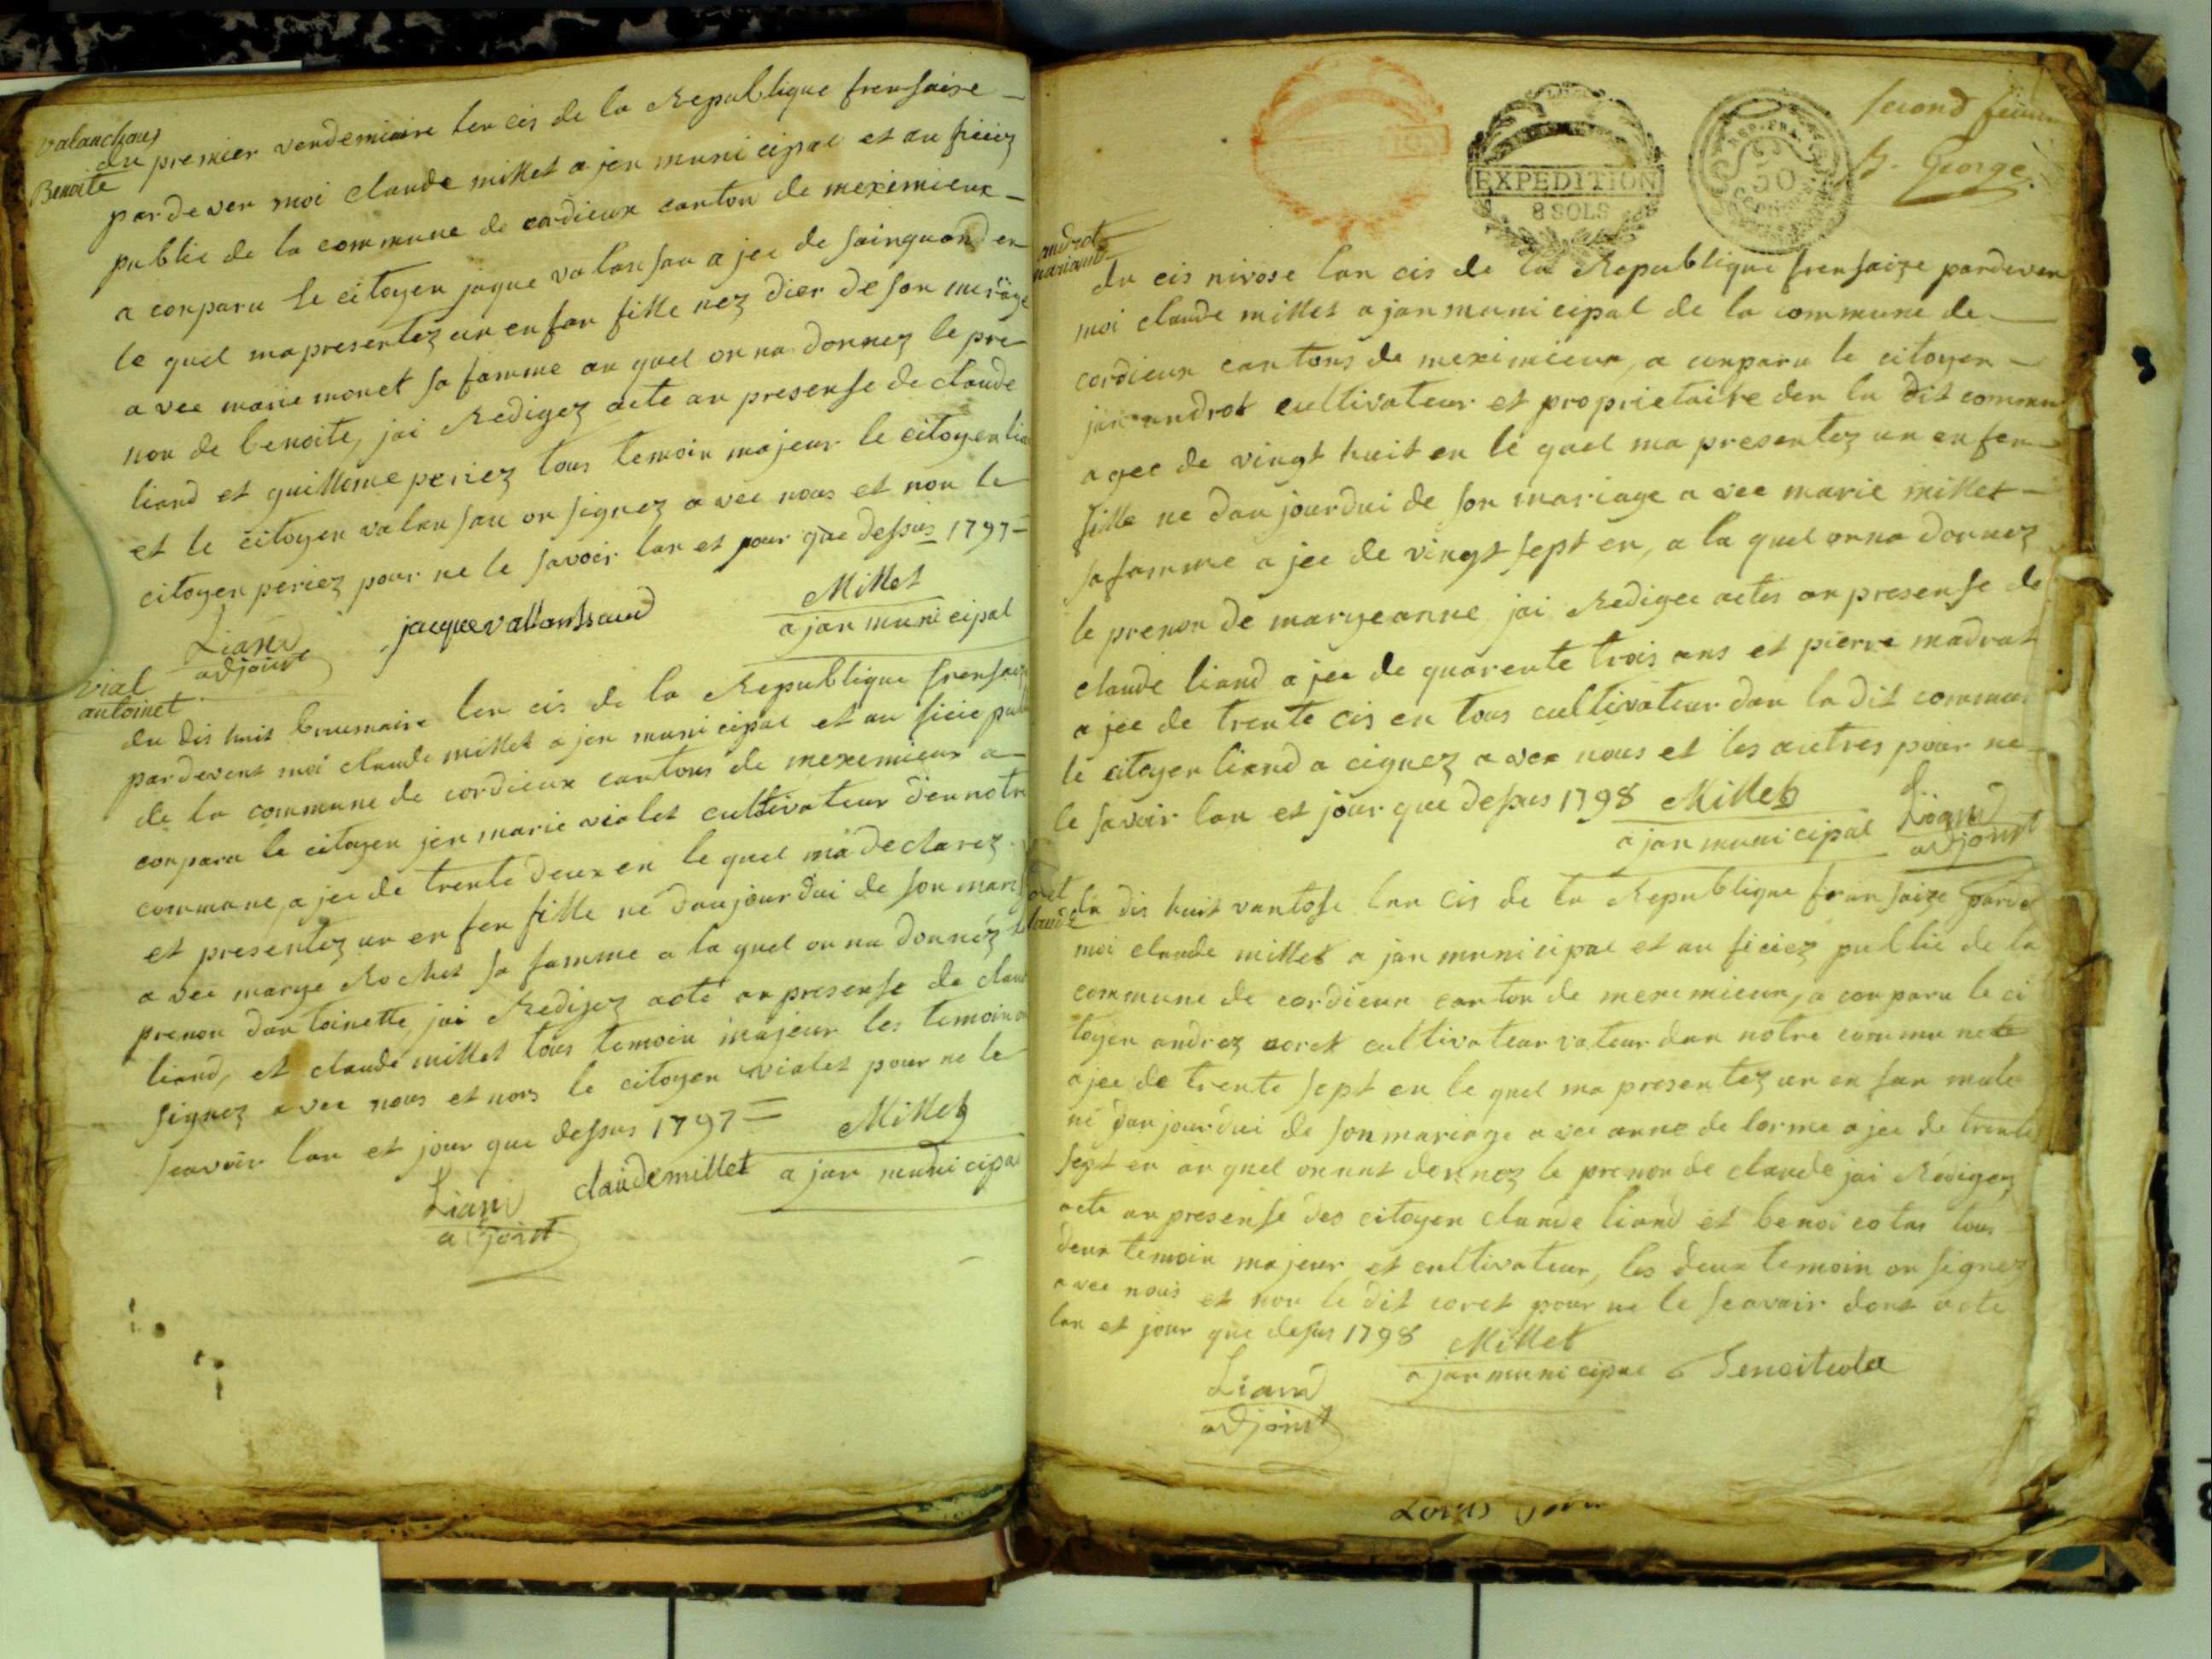 valanchaus
Benoite
du premier vendemiaire len cis de la Republique frensaise
par dever moi claude millet a jen muni cipal et au ficiez
public de la commune de cordieux canton de meximieux
a conparu le citoyen jaque valansau a jee de sainquand en
le quel ma presentez un en fan fille nez dier de son meriage
a vec marie monet sa famme au quel on na donnez le pre
non de benoite, jai Redigez acte an presense de claude
liand et guilleme periez tous temoin majeur le citoyen lia
et le citoyen valansau on signez a vec nous et non le
citoyen periez pour ne le savoir lan et pour que dessus 1797
Liand
adjoint
jacque vallanssaud
Millet
a jan muni cipal
vial
antoinet
du dis huit brumaire len cis de la Republique frensaiz
pardevent moi claude millet a jen municipal et au ficie pu
de la commune de cordieux cantons de meximieux a
conparu le citoyen jen marie violet cultivateur den notre
commune, a jee de trente deux en le quel ma declarez
et presentez un en fen fille ne daujourdui de son mari
a vec marye Rochet sa famme a la quel on na donnéz le
prenon dantoinette, jai Redijez acte an presense de clau
liand, et claude millet tous temoin majeur les temoin on
signez a vec nous et nons le citoyen violet pour ne le
scavoir lan et jour que dessus 1797
Millet
a jan municipa
Liand
adjoint
claudemillet
second feuu
St. George
EXPEDITION
8 SOLS
REP. FRA.
50
androt
mariann
du cis nivose lan cis de la Republique frensaize pardeven
moi claude millet a jan municipal de la commune de
cordieux cantons de meximieux, a conparu le citoyen
jan androt cultivateur et proprietaire den la dit commu
a gee de vingt huit en le quel ma presentez un en fen
fille ne daujourdui de son mariage a vec marie millet
sa famme a jee de vingt sept en, a la quel on na donnez
le prenon de maryeanne jai Redigee actes an presense de
claude liand a jee de quarente trois ans et pierre madrat
a jee de trente cis en tous cultivateur dan la dit commun
le citoyen liand a cignez a vec nous et les autres pour ne
le savoir lan et jour que desus 1798
Millet
a jan municipal
Liand
adjoint
oret
laude
du dis huit vantose lan cis de la Republique fransaize parde
moi claude millet a jan municipal et au ficiez public de la
commune de cordieux canton de meximieux, a conparu le ci
toyen andrez coret cultivateur vateur dan notre commune
a jee de trente sept en le quel ma presentez un en fan male
né daujourdui de son mariage a vec anne de lorme a jee de trente
sept en au quel on nat donnez le prenon de claude jai Redigez
acte an presense des citoyen claude liand et benoi colas tous
deux temoin majeur et cultivateur, les deux temoin on signez
avec nous et non le dit coret pour ne le scavoir dont acte
lan et jour que desus 1798
Millet
a jan municipal
Liand
adjoint
Louis